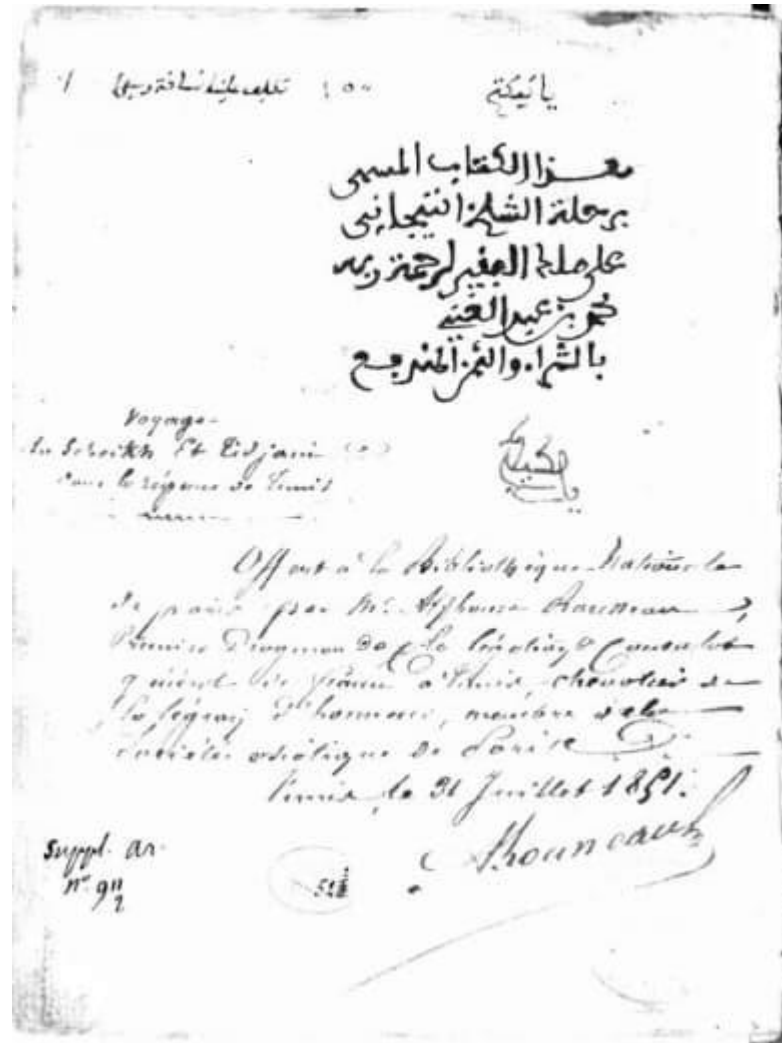 هذا الكتاب المسمى
برحلة الشيخ التيجاني
على ملك الفقير لرحمة ربه
بن عبد الغني
بالشراء والثمن المندفع
Voyage
du Scheikh Et Tidjani
dans la régence de Tunis
Offert à la Bibliothèque Nationale
de paris par Mr. Alphonse Rousseau,
Premier Drogman de la Consulat
général de france à Tunis, chevalier de
la légion d'honneur, membre de la
Société asiatique de Paris
Tunis, le 31 Juillet 1851.
A Rousseau
Suppl. ar.
n° 911
2